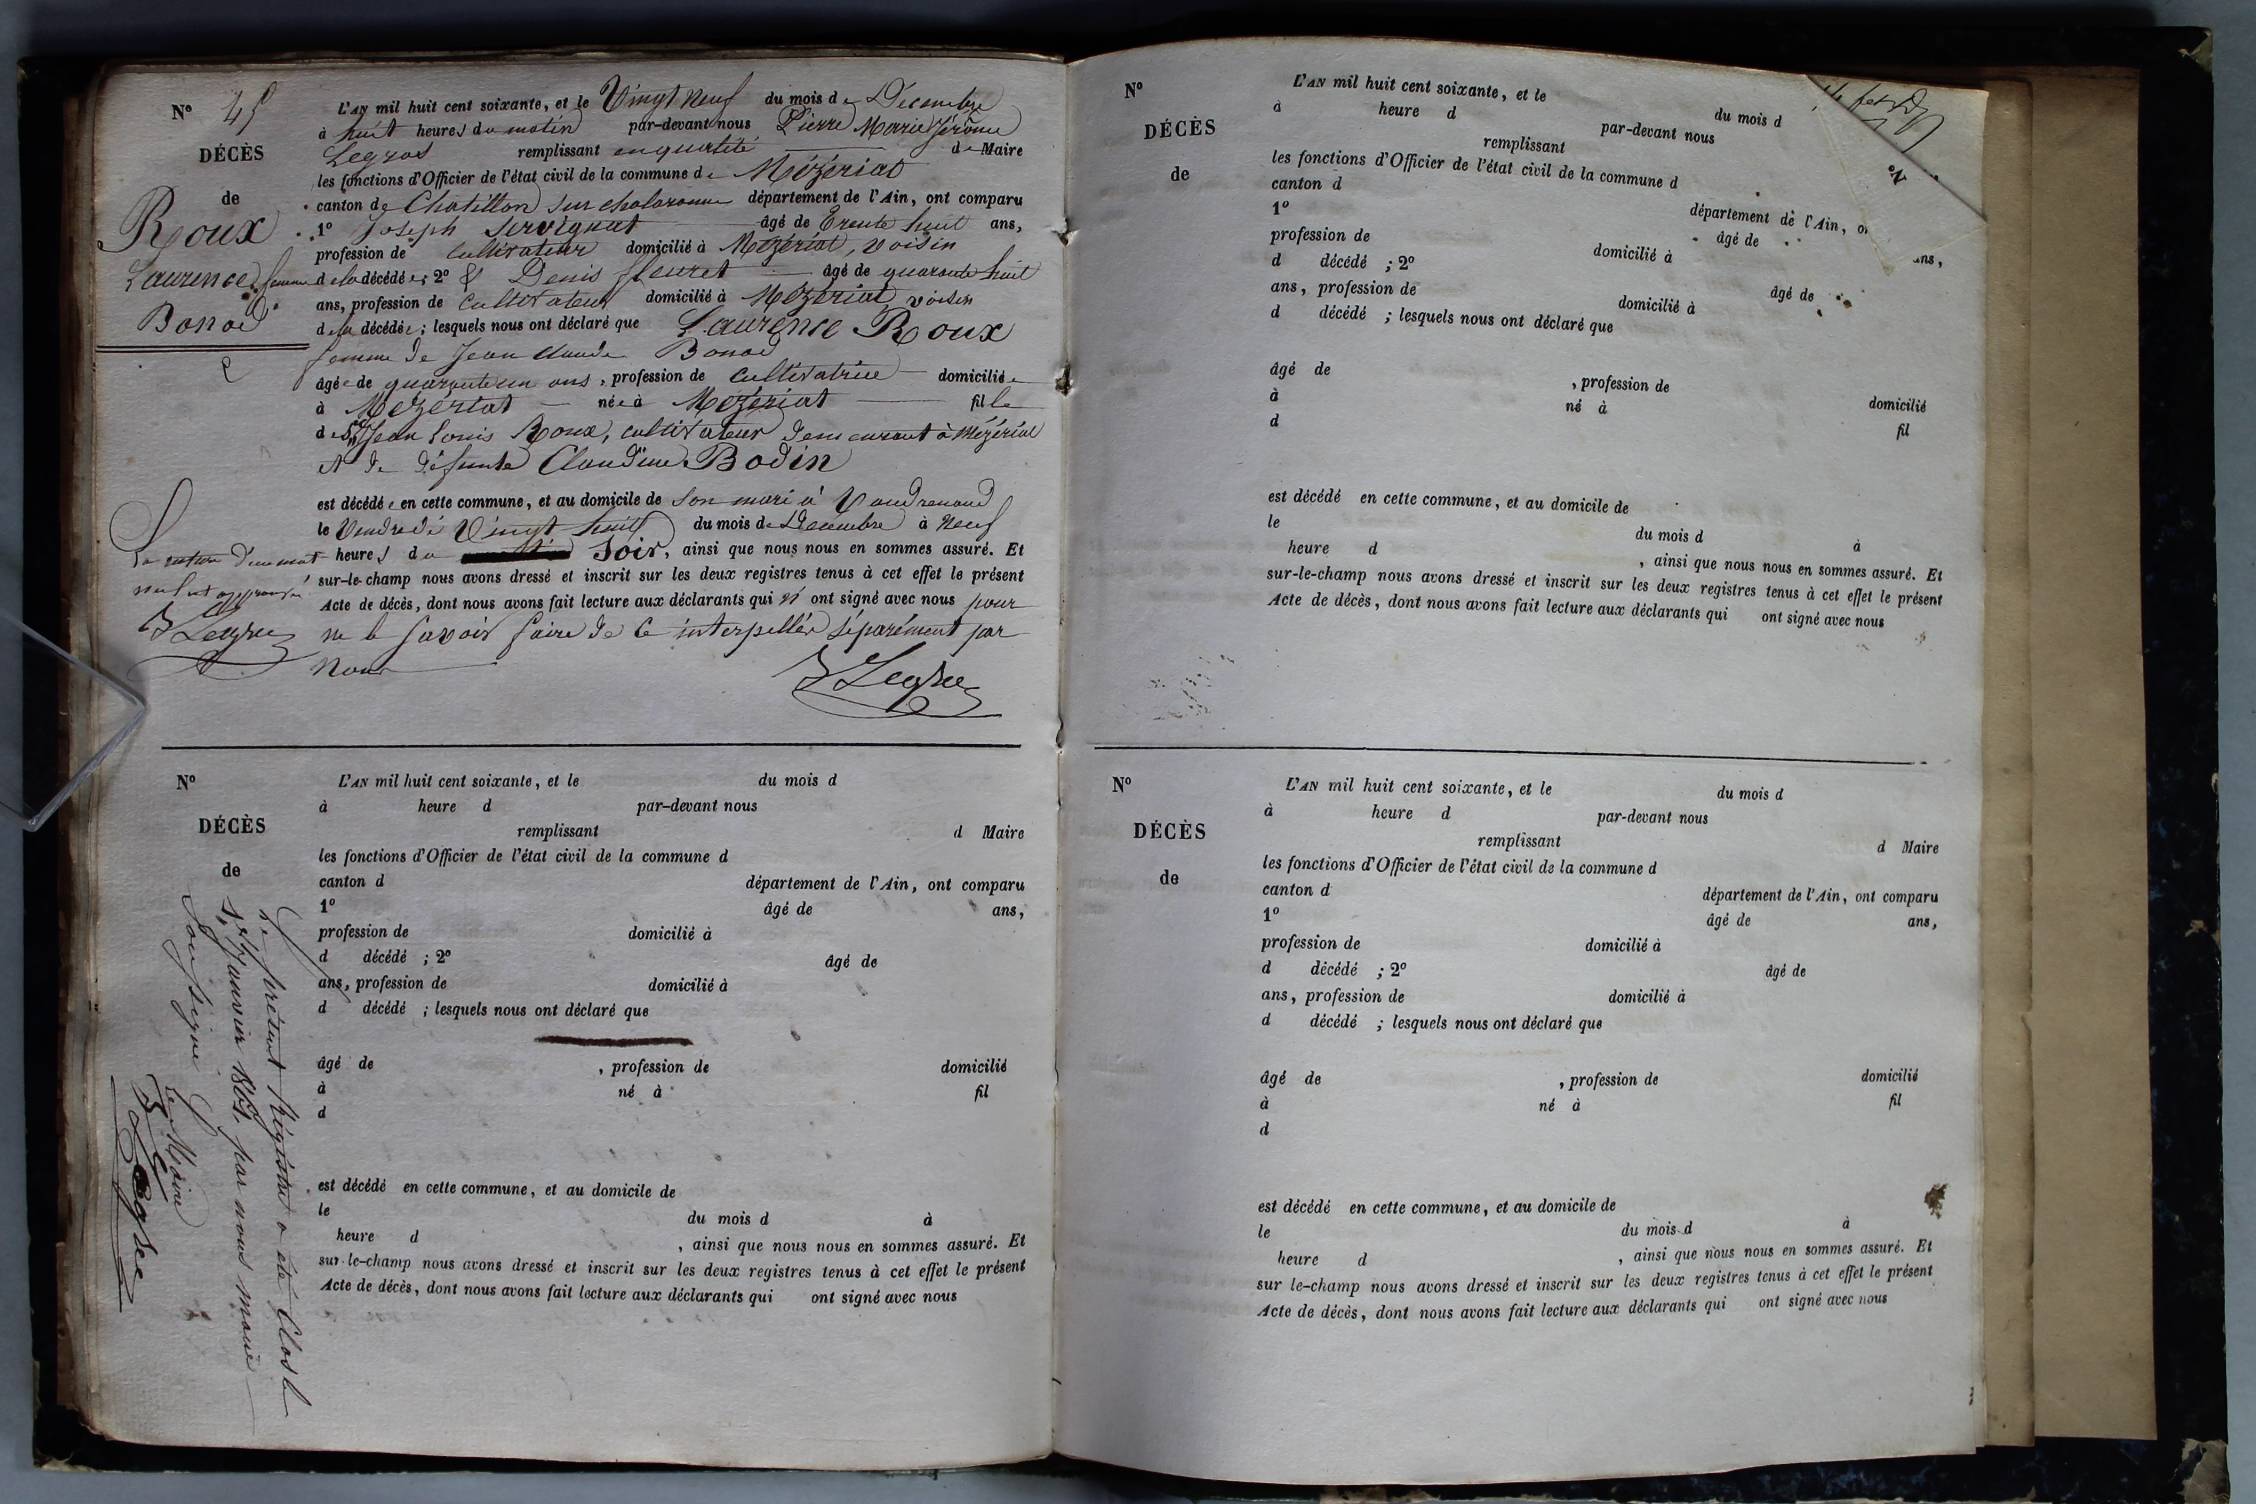 N° 45
DÉCÈS
de
Roux
Laurence femme
Bonod
L'AN mil huit cent soixante, et le Vingt neuf du mois de Décembre
à huit heures du matin par-devant nous Pierre Marie Jérôme
Legros remplissant en qualité de Maire
les fonctions d'Officier de l'état civil de la commune de Mézériat
canton de Chatillon sur chalaronne département de l'Ain, ont comparu
1° Joseph Servignat âgé de Trente huit ans,
profession de cultivateur domicilié à Mézériat, voisin
de la décédée; 2° & Denis fleuret âgé de quarante huit
ans, profession de Cultivateur domicilié à Mézériat voisin
de la décédée; lesquels nous ont déclaré que Laurence Roux
femme de Jean Claude Bonod
âgée de quarante un ans, profession de cultivatrice domiciliée
à Mézériat née à Mézériat fille
de Jean Louis Roux, cultivateur demeurant à Mézériat
et de défunte Claudine Bodin
est décédée en cette commune, et au domicile de son mari à Vandrenand
le Vendredi Vingt huit du mois de Décembre à neuf
heures du Soir, ainsi que nous nous en sommes assuré. Et
sur-le-champ nous avons dressé et inscrit sur les deux registres tenus à cet effet le présent
Acte de décès, dont nous avons fait lecture aux déclarants qui n' ont signé avec nous pour
ne le savoir faire de ce interpellés séparément par
nous
La rature d'un mot
nul est approuvé
N°
DÉCÈS
de
L'AN mil huit cent soixante, et le du mois d
à heure d par-devant nous
remplissant d Maire
les fonctions d'Officier de l'état civil de la commune d
canton d département de l'Ain, ont comparu
1° âgé de ans,
profession de domicilié à
d décédé ; 2° âgé de
ans, profession de domicilié à
d décédé ; lesquels nous ont déclaré que
âgé de , profession de domicilié
à né à fil
d
est décédé en cette commune, et au domicile de
le du mois d à
heure d , ainsi que nous nous en sommes assuré. Et
sur-le-champ nous avons dressé et inscrit sur les deux registres tenus à cet effet le présent
Acte de décès, dont nous avons fait lecture aux déclarants qui ont signé avec nous
Le présent Régistre a été Clos le
Janvier 1861 par nous maire
Soussigné
Le Maire
N°
DÉCÈS
de
L'AN mil huit cent soixante, et le du mois d
à heure d par-devant nous
remplissant
les fonctions d'Officier de l'état civil de la commune d
canton d département de l'Ain, o
1° âgé de ans,
profession de domicilié à
d décédé ; 2° âgé de
ans, profession de domicilié à
d décédé ; lesquels nous ont déclaré que
âgé de , profession de domicilié
à né à fil
d
est décédé en cette commune, et au domicile de
le du mois d à
heure d , ainsi que nous nous en sommes assuré. Et
sur-le-champ nous avons dressé et inscrit sur les deux registres tenus à cet effet le présent
Acte de décès, dont nous avons fait lecture aux déclarants qui ont signé avec nous
N°
N°
DÉCÈS
de
L'AN mil huit cent soixante, et le du mois d
à heure d par-devant nous
remplissant d Maire
les fonctions d'Officier de l'état civil de la commune d
canton d département de l'Ain, ont comparu
1° âgé de ans,
profession de domicilié à
d décédé ; 2° âgé de
ans, profession de domicilié à
d décédé ; lesquels nous ont déclaré que
âgé de , profession de domicilié
à né à fil
d
est décédé en cette commune, et au domicile de
le du mois d à
heure d , ainsi que nous nous en sommes assuré. Et
sur le-champ nous avons dressé et inscrit sur les deux registres tenus à cet effet le présent
Acte de décès, dont nous avons fait lecture aux déclarants qui ont signé avec nous